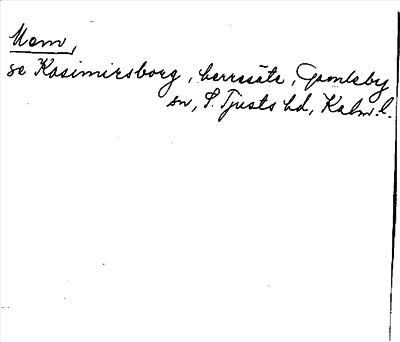 Mem,
se Kasimirsborg, herresäte, Gamleby
sn, S. Tjusts hd, Kalm. l.